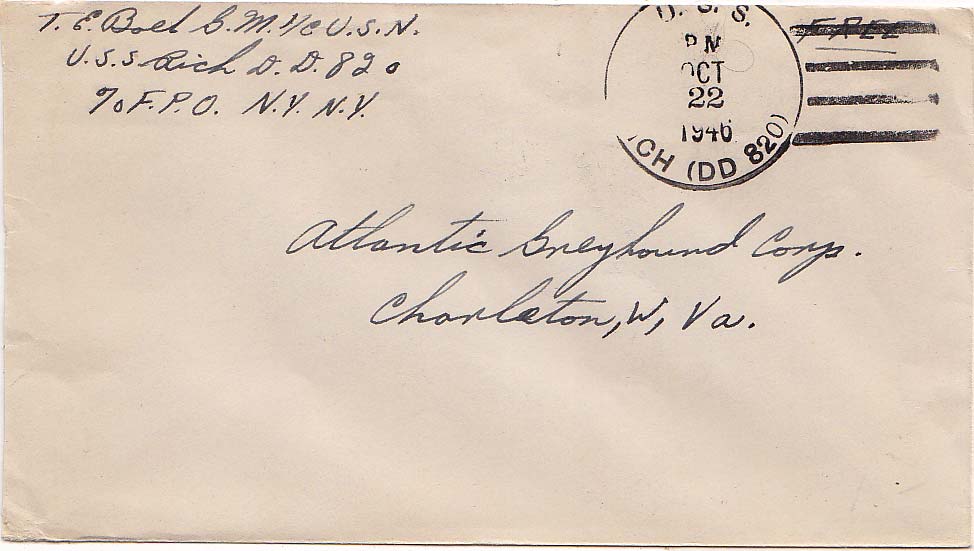 T. E. Boel G. M. 1/c U.S.N.
U.S.S. Rich D. D. 820
c/o F.P.O. N.Y. N.Y.
U. S. S.
PM
OCT
22
1946
ICH (DD 820)
FREE
Atlantic Greyhound Corp.
Charleton, W, Va.